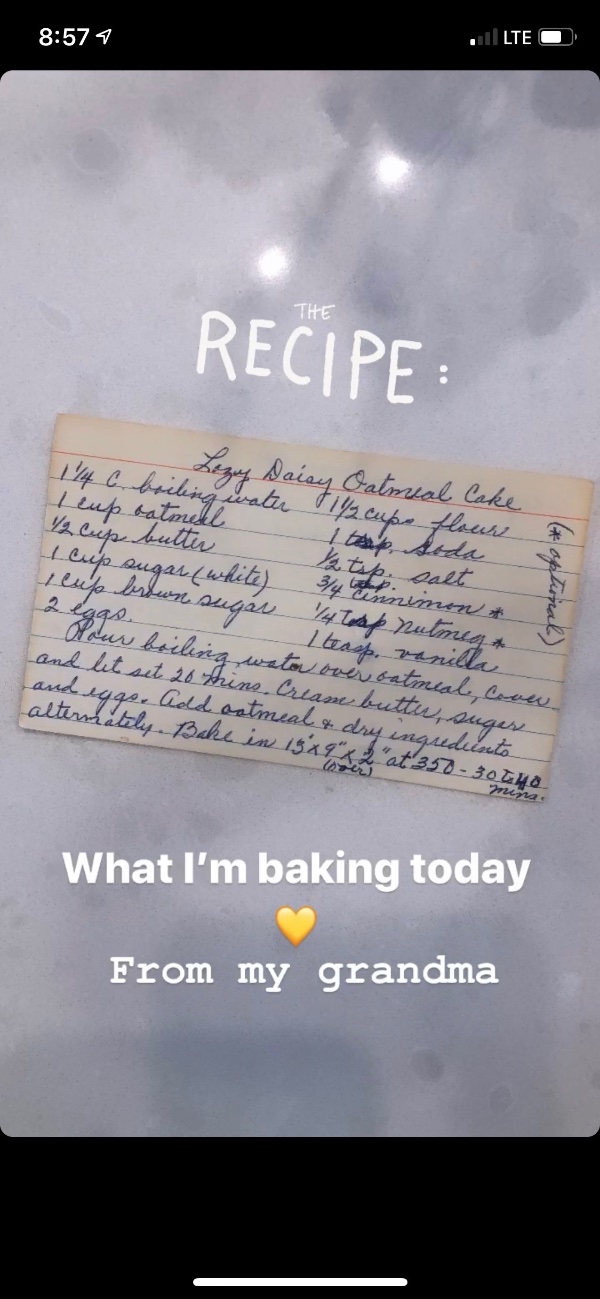 8:57
LTE
THE
RECIPE:
Lazy Daisy Oatmeal Cake
1 1/4 C. boiling water
1 cup oatmeal
1/2 cup butter
1 cup sugar (white)
1 cup brown sugar
2 eggs.
1 1/2 cups flour
1 tsp. Soda
1/2 tsp. salt
3/4 tsp. Cinnimon *
1/4 tsp Nutmeg *
1 teasp. vanilla
(* optional)
Pour boiling water over oatmeal, cover
and let set 20 mins. Cream butter, sugar
and eggs. Add oatmeal & dry ingredients
alternately. Bake in 13"x9"x2" at 350 - 30 to 40
(over) mins.
What I'm baking today
💛
From my grandma